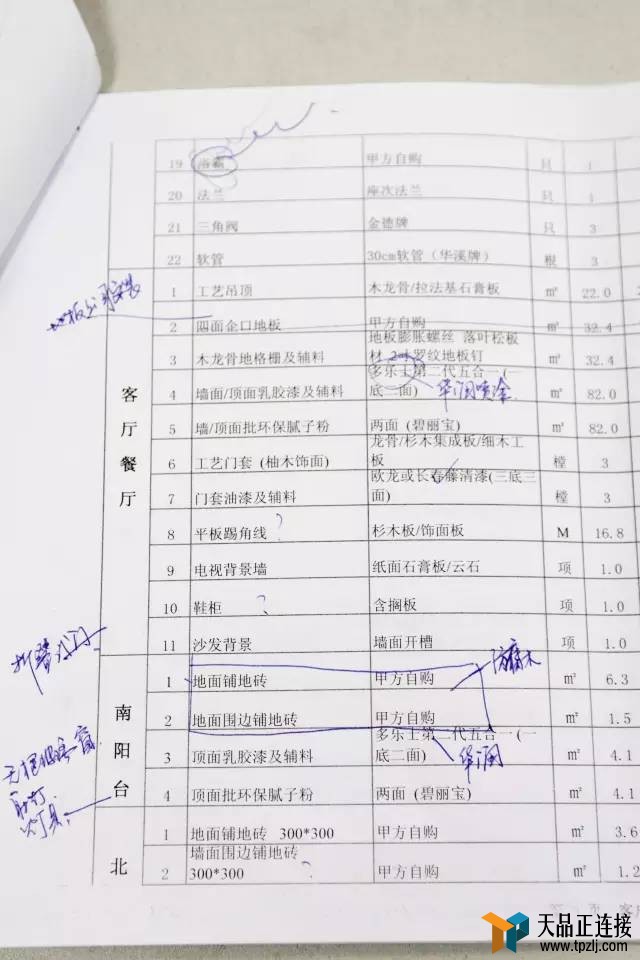 19 浴霸 甲方自购 只 1
20 法兰 座次法兰 只 1
21 三角阀 金德牌 只 3
22 软管 30cm软管（华溪牌） 根 3
客厅餐厅
1 工艺吊顶 木龙骨/拉法基石膏板 m² 22.0
2 四面企口地板 甲方自购 m² 32.4
3 木龙骨地格栅及辅料 地板膨胀螺丝 落叶松板
材 2吋罗纹地板钉 m² 32.4
4 墙面/顶面乳胶漆及辅料 多乐士第二代五合一 (一
底二面) 华润喷涂 m² 82.0
5 墙/顶面批环保腻子粉 两面 (碧丽宝) m² 82.0
6 工艺门套 (柚木饰面) 龙骨/杉木集成板/细木工
板 樘 3
7 门套油漆及辅料 欧龙或长春藤清漆(三底三
面) 樘 3
8 平板踢角线 ? 杉木板/饰面板 M 16.8
9 电视背景墙 纸面石膏板/云石 项 1.0
10 鞋柜 ? 含搁板 项 1.0
11 沙发背景 墙面开槽 项 1.0
南阳台
1 地面铺地砖 甲方自购 防腐木 m² 6.3
2 地面围边铺地砖 甲方自购 m² 1.5
3 顶面乳胶漆及辅料 多乐士第二代五合一 (一
底二面) 华润 m² 4.1
4 顶面批环保腻子粉 两面 (碧丽宝) m² 4.1
灯具
北
1 地面铺地砖 300*300 甲方自购 m² 3.6
2 墙面围边铺地砖
300*300 ? 甲方自购 m² 1.2
页 客户
天品正连接
www.tpzlj.com